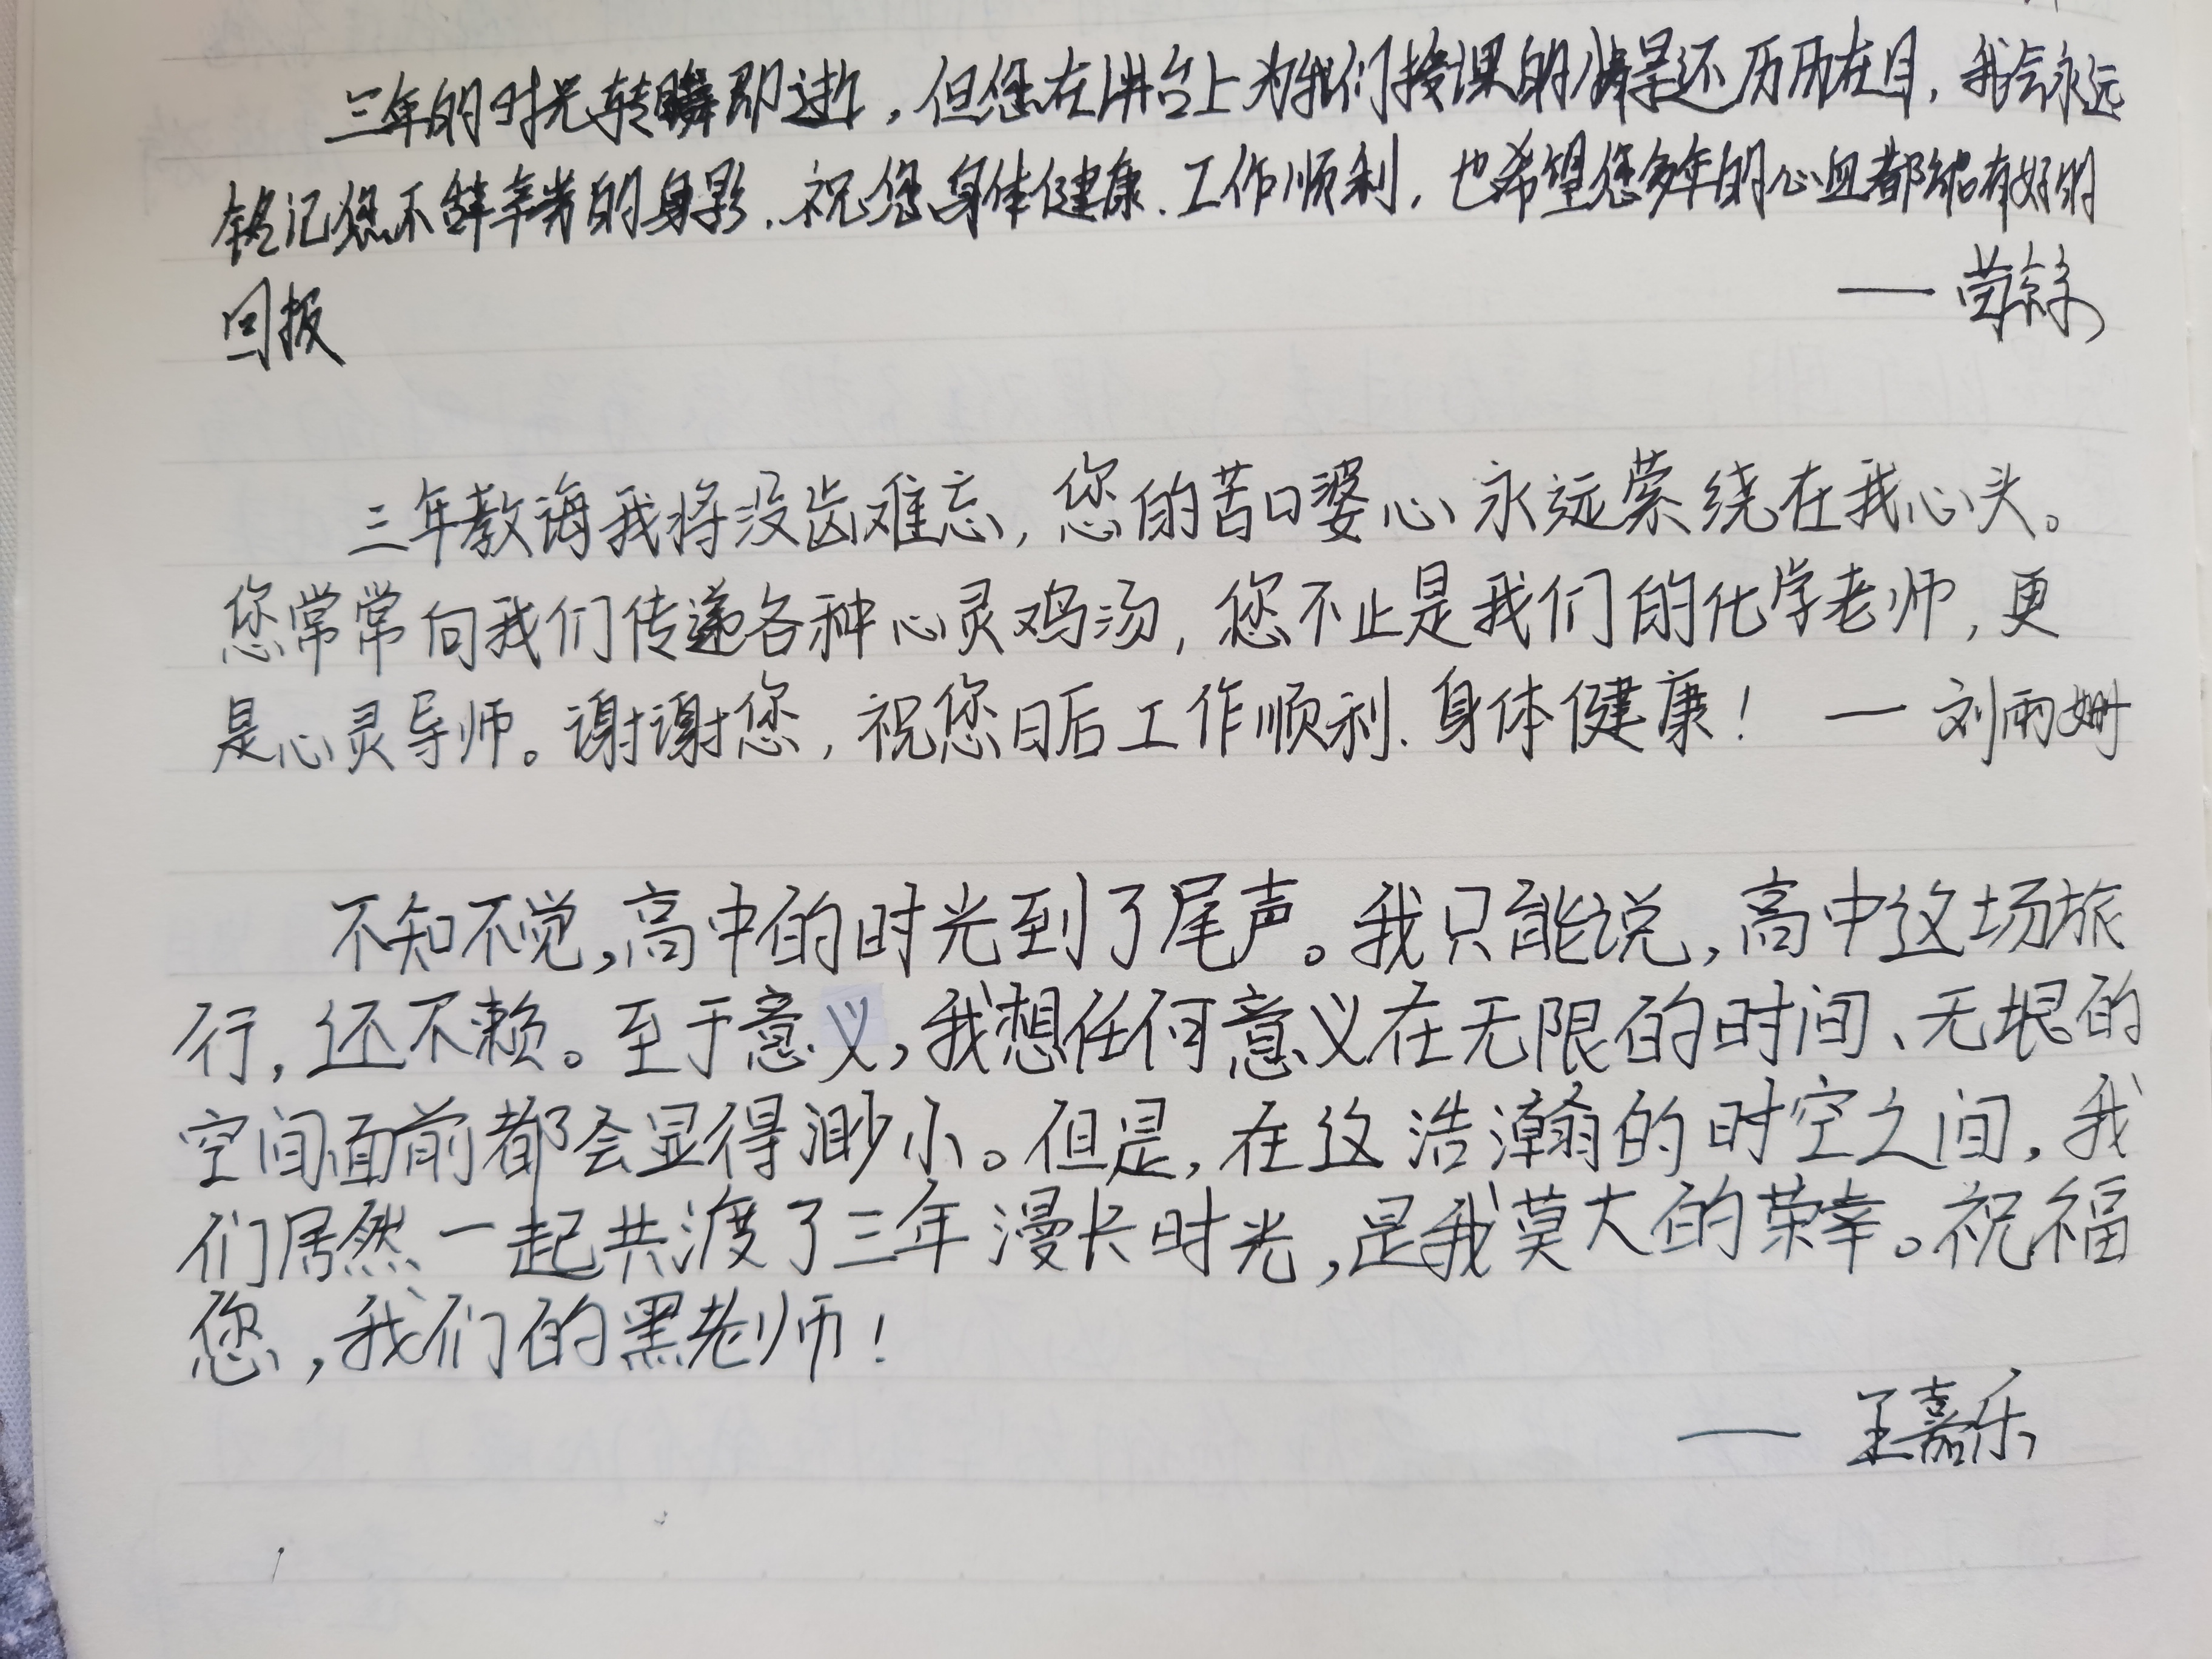 三年的时光转瞬即逝，但您在讲台上为我们授课的情景还历历在目，我会永远
铭记您不辞辛劳的身影.祝您身体健康.工作顺利，也希望您多年的心血都能有好的
回报
——
三年教诲我将没齿难忘，您的苦口婆心永远萦绕在我心头。
您常常向我们传递各种心灵鸡汤，您不止是我们的化学老师，更
是心灵导师。谢谢您，祝您日后工作顺利、身体健康！ — 刘雨姗
不知不觉，高中的时光到了尾声。我只能说，高中这场旅
行，还不赖。至于意义，我想任何意义在无限的时间、无垠的
空间面前都会显得渺小。但是，在这浩瀚的时空之间，我
们居然一起共渡了三年漫长时光，是我莫大的荣幸。祝福
您，我们的黑老师！
—— 王嘉乐